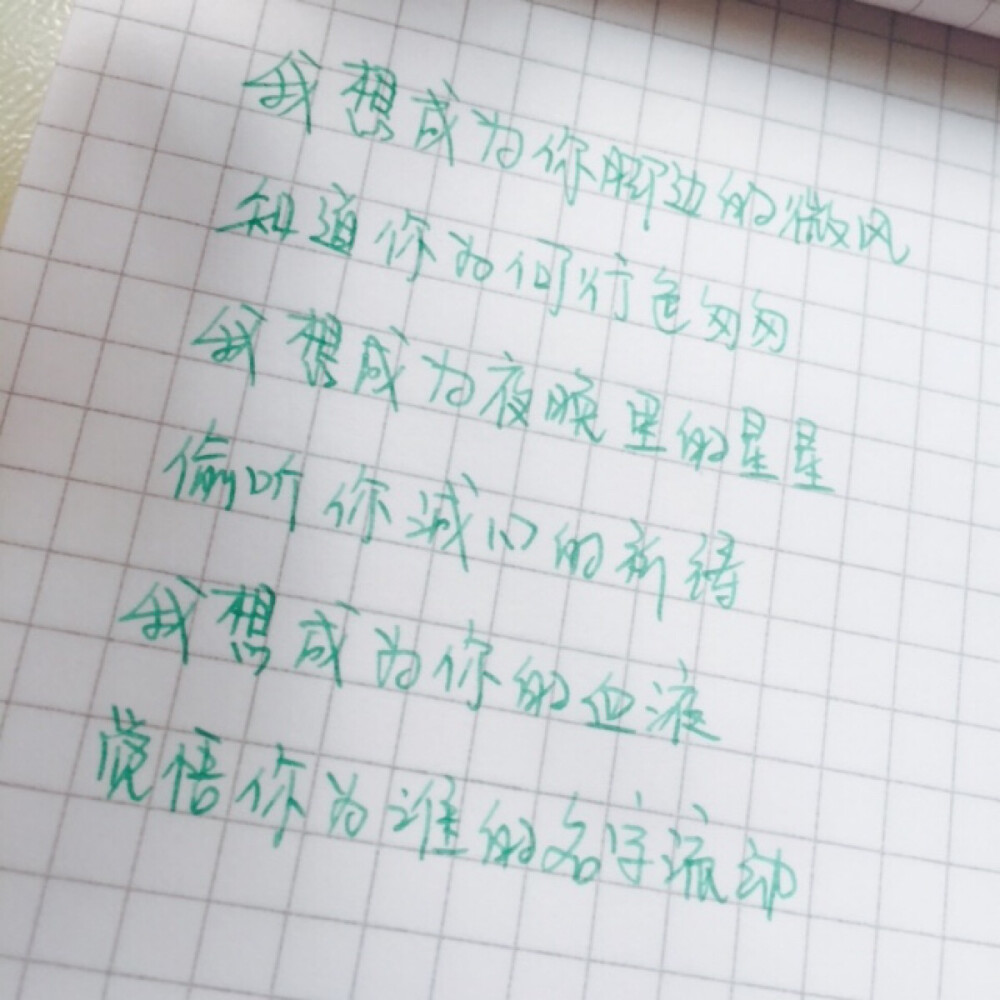 我想成为你脚边的微风
知道你为何行色匆匆
我想成为夜晚里的星星
偷听你诚心的祈祷
我想成为你的血液
觉悟你为谁的名字流动